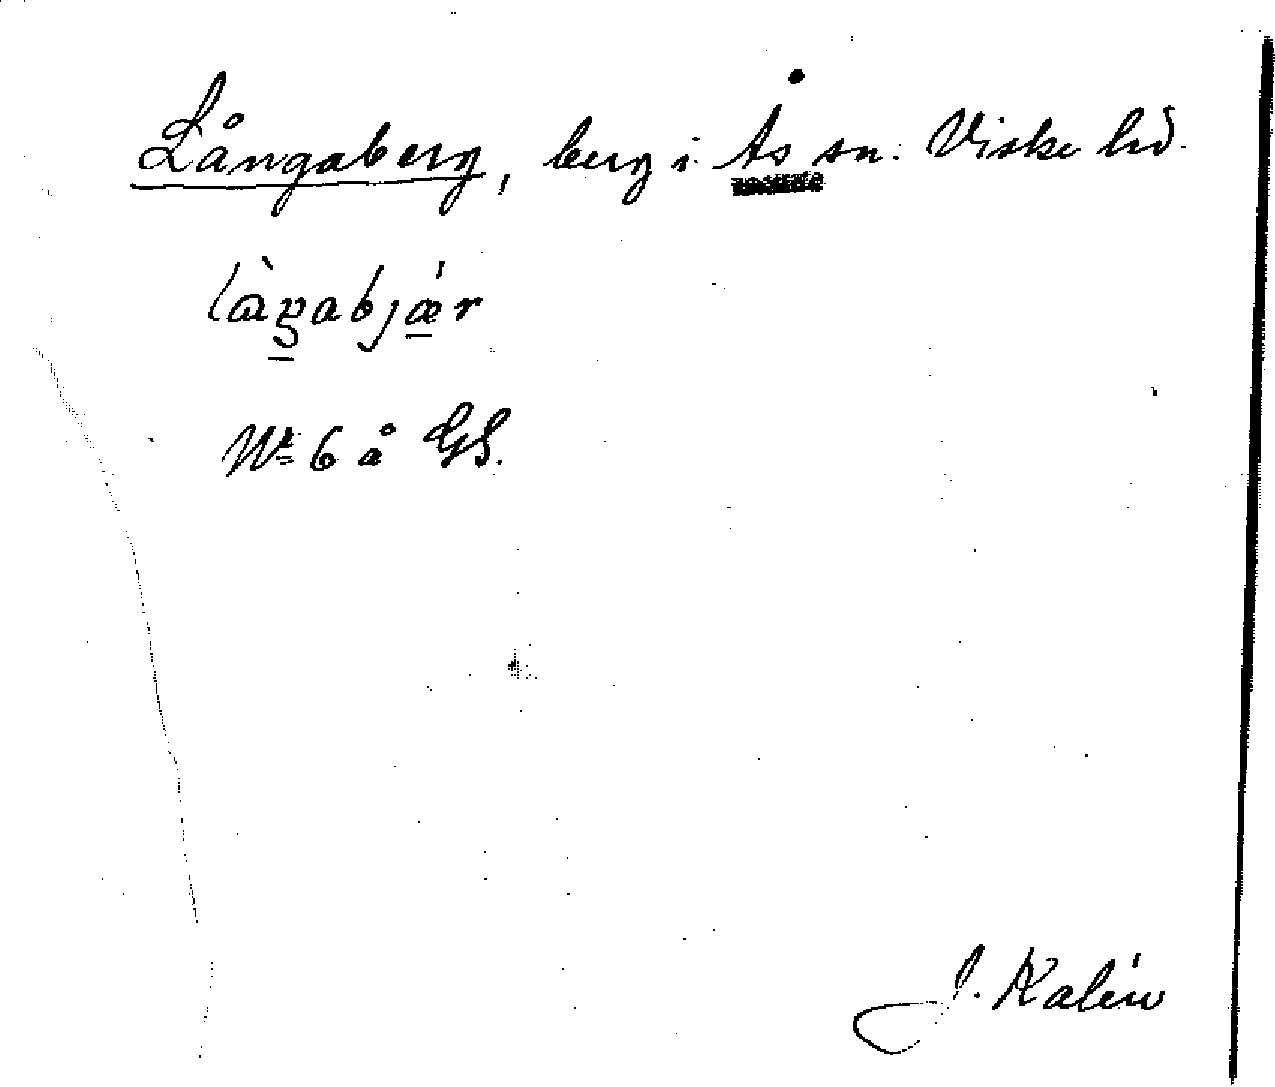 Långaberg, berg i Ås sn. Viske hd.
Nr 6 å GS.
J. Kalén